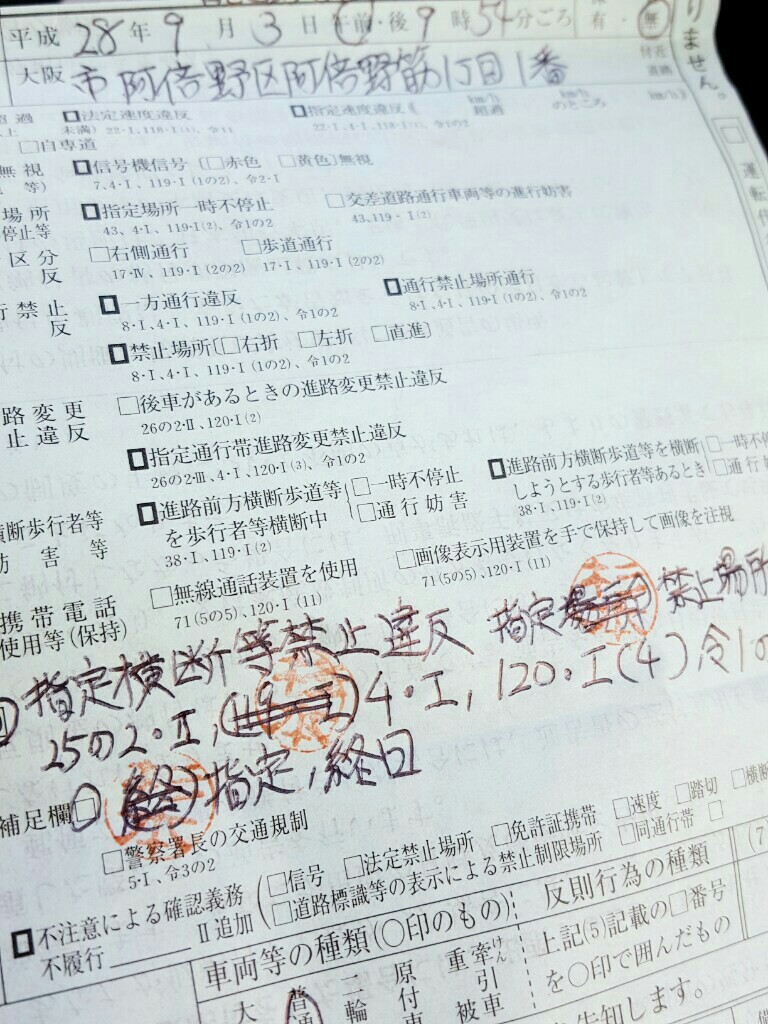 平成 28 年 9 月 3 日 午前・後 9 時 54 分ごろ 有・無
りません。
大阪 市阿倍野区阿倍野筋1丁目1番 付近 道路
超過 □法定速度違反 □指定速度違反( km/h 超過 km/h のところ km/h)
未満) 22・I、118・I(1)、令11 22・I、4・I、118・I(1)、令1の2
□自専道
無視 □信号機信号(□赤色 □黄色)無視
等) 7、4・I、119・I(1の2)、令2・I
場所 □指定場所一時不停止 □交差道路通行車両等の進行妨害
停止等 43、4・I、119・I(2)、令1の2 43、119・I(2)
区分 □右側通行 □歩道通行
反 17・Ⅳ、119・I(2の2) 17・I、119・I(2の2)
行禁止 □一方通行違反 □通行禁止場所通行
反 8・I、4・I、119・I(1の2)、令1の2 8・I、4・I、119・I(1の2)、令1の2
□禁止場所(□右折 □左折 □直進)
8・I、4・I、119・I(1の2)、令1の2
路変更 □後車があるときの進路変更禁止違反
止違反 26の2・Ⅱ、120・I(2)
□指定通行帯進路変更禁止違反
26の2・Ⅲ、4・I、120・I(3)、令1の2
横断歩行者等 □進路前方横断歩道等を歩行者等横断中(□一時不停止 □通行妨害 □進路前方横断歩道等を横断しようとする歩行者等あるとき(□一時不停 □通行
妨害等 38・I、119・I(2) 38・I、119・I(2)
携帯電話 □無線通話装置を使用 □画像表示用装置を手で保持して画像を注視
使用等(保持) 71(5の5)、120・I(11) 71(5の5)、120・I(11)
指定横断等禁止違反 指定 禁止場所
25の2・Ⅱ, 4・I, 120・I(4)令1の
補足欄□ 指定,終日
□警察署長の交通規制
5・I、令3の2
□不注意による確認義務 (□信号 □法定禁止場所 □免許証携帯 □速度 □踏切 □横断
不履行 Ⅱ追加 □道路標識等の表示による禁止制限場所 □同通行帯 □
車両等の種類(○印のもの) 反則行為の種類 (7
大 普通 輪 原付車 重被 牽引車 けん 上記(5)記載の□番号を○印で囲んだもの
告知します。